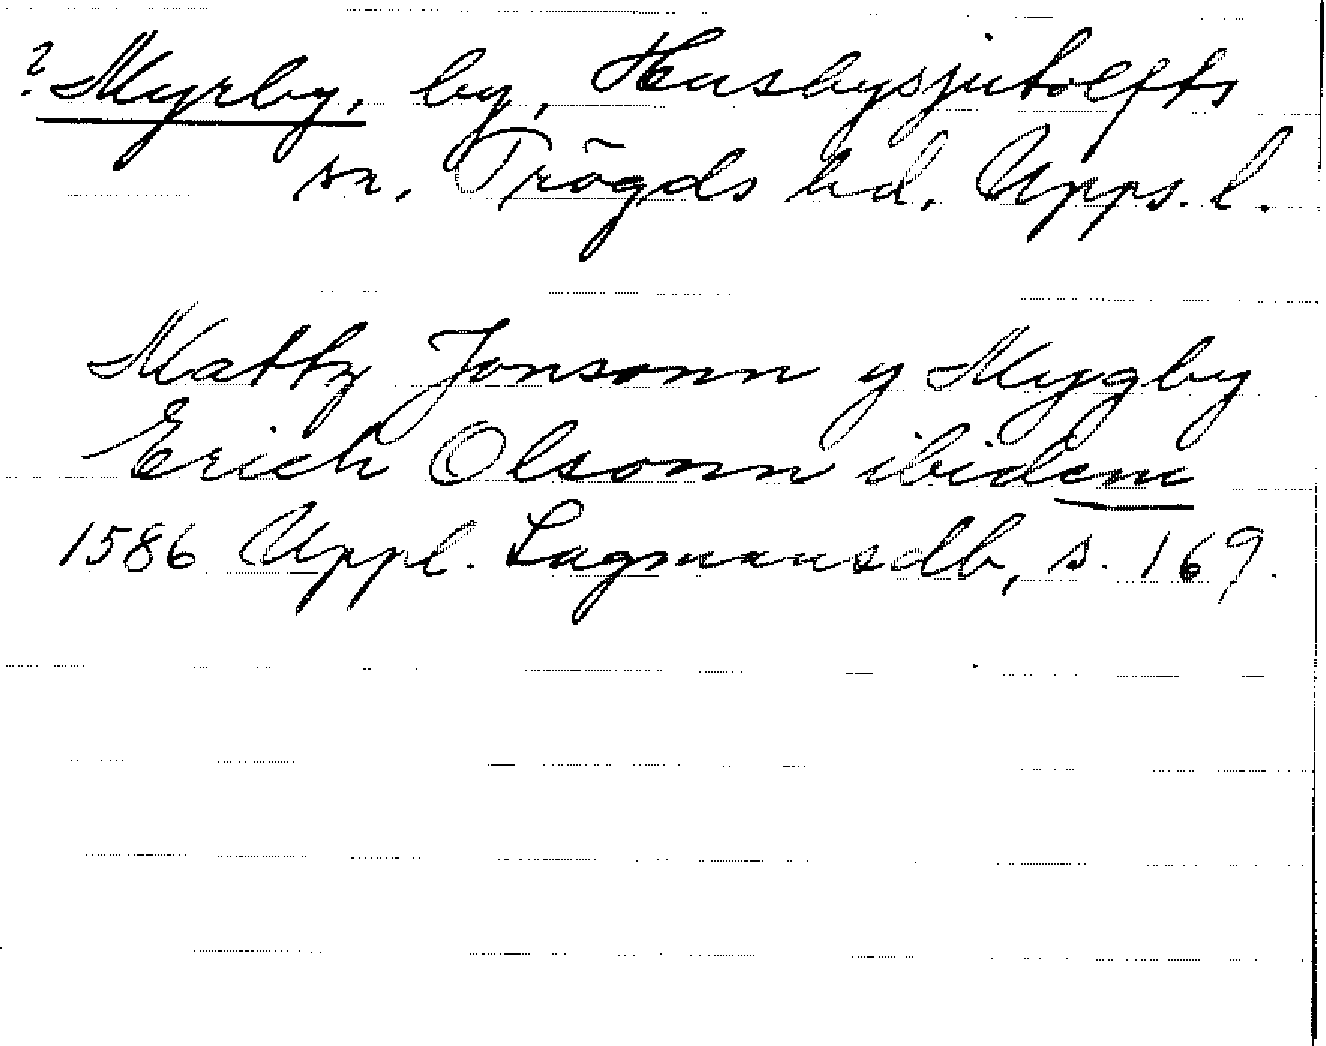 ? Myrby, by, Husbysjutolfts
sn. Trögds hd. Upps. l.
Mattz Jonsonn y Mygby
Erich Olsonn ibidem
1586 Uppl. Lagmansdb, s. 169.